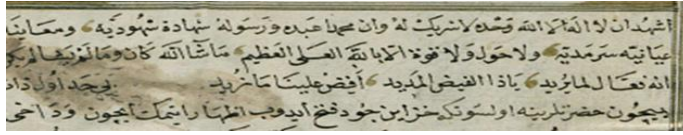 اشهد ان لا اله الا الله وحده لا شريك له وان محمدا عبده ورسوله شهادة شهودية ومعاينة
عيانية سرمدية ولا حول ولا قوة الا بالله العلي العظيم ما شا الله كان وما لم يشا لم يكن
انه فعال لما يريد يا ذا الفيض المديد أفض علينا ما نريد اول ذات
حضرتلرينه اولسونكه خزاين جود فتح ايدوب اظهار ايتمك ايچون